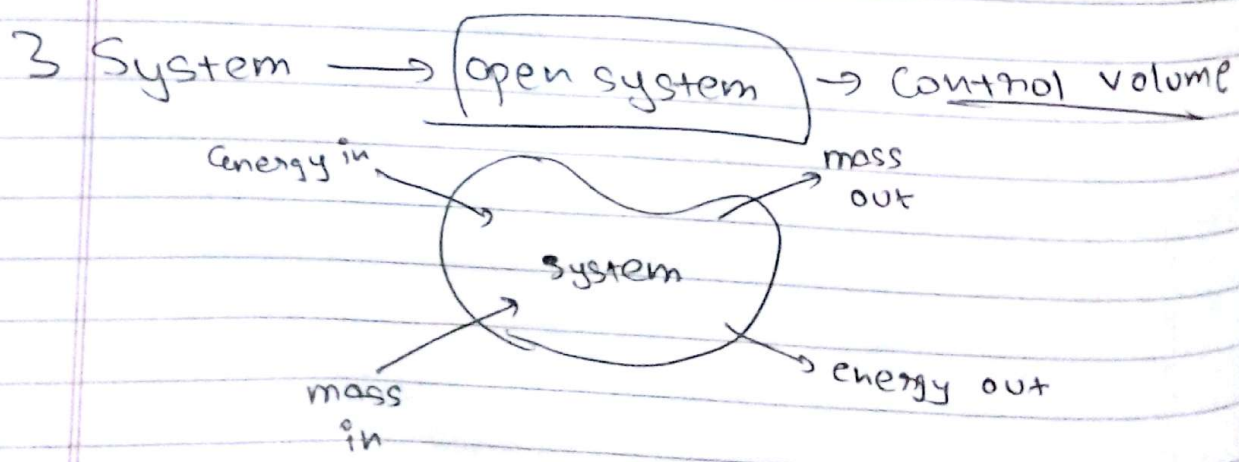 3 System → open system → Control volume
energy in
mass
out
system
mass
in
energy out